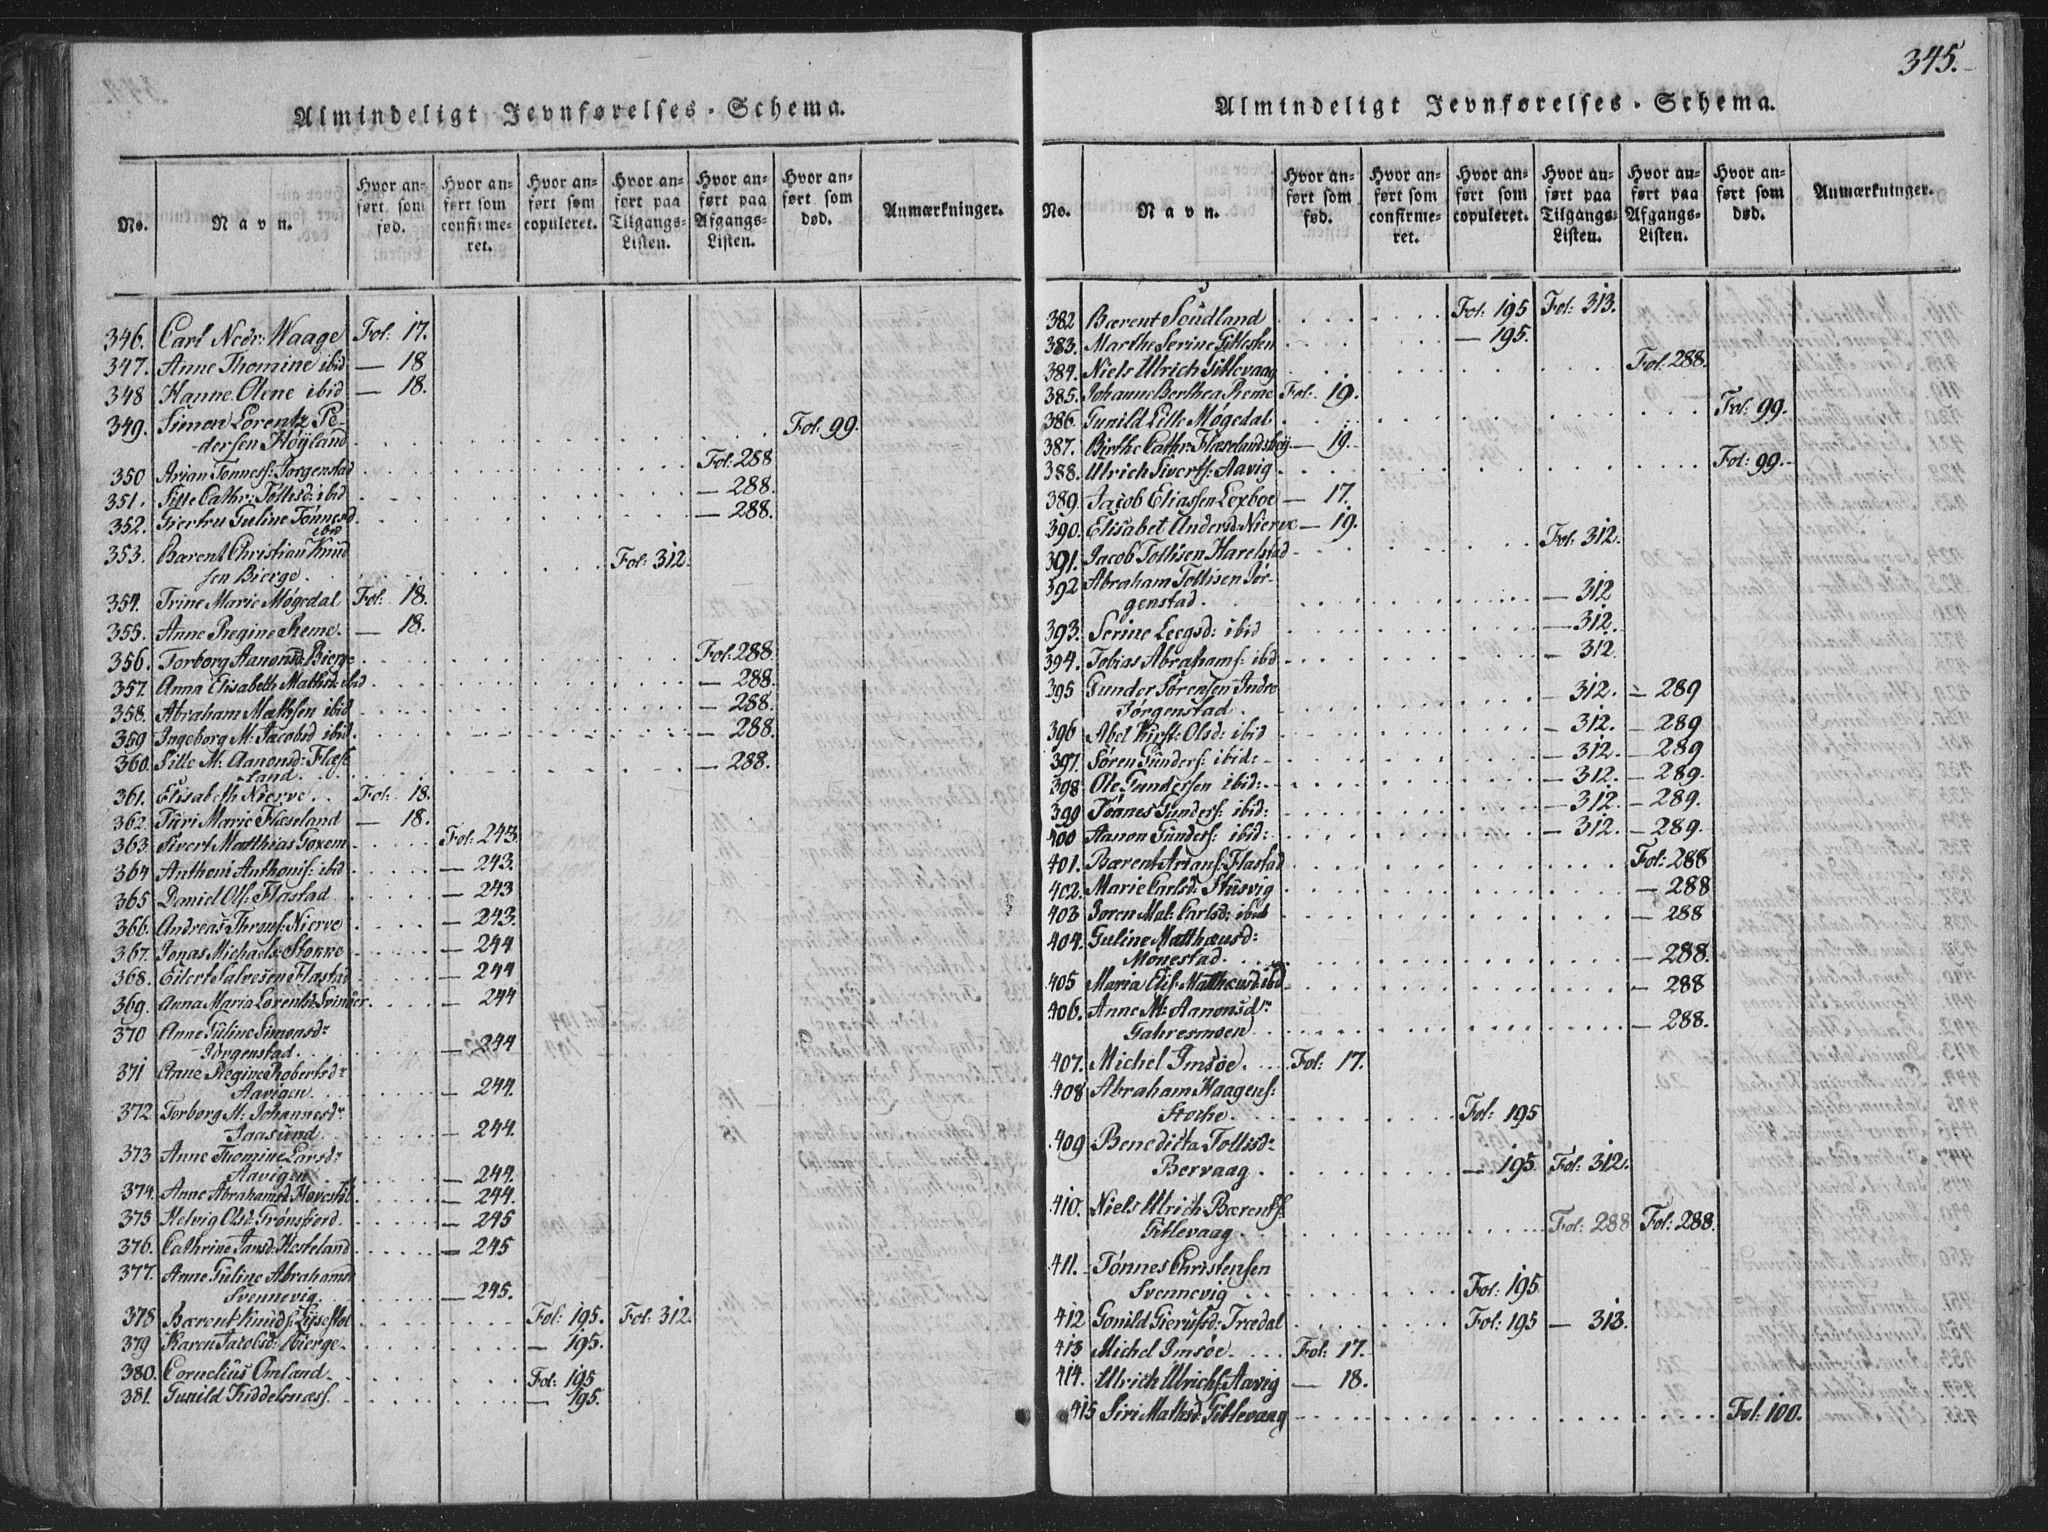 Almindeligt Jevnførelses-Schema.
No. Navn. Hvor anført som fød. Hvor anført som confirmeret. Hvor anført som copuleret. Hvor anført paa Tilgangs-Listen. Hvor anført paa Afgangs-Listen. Hvor anført som død. Anmærkninger.
346. Carl Nedr: Waage Fol: 17.
347. Anne Thomine ibid — 18
348 Hanne Olene ibid — 18.
349. Simon Lorentz Pe-
dersen Høÿland Fol: 99.
350 Arian Tønness: Jorgenstad Fol: 288
351. Sille Cathr: Tollisd: ibid — 288.
352. Giertru Guline Tönnesd — 288.
ibid
353. Barent Christian Knud
sen Bierge. Fol: 312.
354. Trine Marie Møgedal Fol: 18.
355. Anne Regine Reme. — 18.
356. Torborg Aanonsd: Bierge Fol: 288.
357. Anna Elisabeth Mathisd: ibid — 288.
358. Abraham Mathsen ibid — 288.
359 Ingeborg M: Jacobsd ibid. — 288.
360. Sille M: Aanonsd: Flæse
land. — 288.
361. Elisabeth Nierve. Fol: 18.
362. Turi Marie Flæseland — 18.
363 Sivert Matthias Foxem Fol: 243.
364 Anthoni Anthonis: ibid — 243.
365 Daniel Ols: Flastad — 243
366. Andreas Throns: Nierve — 243.
367. Jonas Michaels: Stokke — 244
368. Eilert Salvesen Flastad — 244
369. Anna Maria Lorentsd: Svinøer — 244
370 Anne Guline Simonsdr
Jörgenstad — 244
371 Anne Regine Robertsdr
Aavigen — 244.
372 Torborg M: Johannesdr
Saasund. — 244.
373 Anne Thomine Larsdr
Aavigen — 244.
374. Anne Abrahamsd: — 244.
375 Helvig Olsd: Grönsfjord. — 245
376. Cathrine Jansd: Hesteland — 245
377. Anne Guline Abrahamsd
Svennevig. — 245.
378 Bærent Knuds: Fol: 195. Fol: 312.
379 Karen Jacobsd: Bierge — 195.
380. Cornelius Omland. Fol: 195
381. Gunild Fiddelsnæss. — 195.
345.
Almindeligt Jevnførelses-Schema.
No. Navn. Hvor anført som fød. Hvor anført som confirmeret. Hvor anført som copuleret. Hvor anført paa Tilgangs-Listen. Hvor anført paa Afgangs-Listen. Hvor anført som død. Anmærkninger.
382 Bærent Soudland Fol: 195 Fol: 313.
383. Marthe Serine Gitlesten — 195.
384. Niels Ulrich Gitlevaag Fol: 288.
385. Johanne Berthea Reme Fol: 19.
386 Gunild Lille Møgedal Fol: 99.
387. Birthe Cathr: Flæselandsbøÿ — 19.
388. Ulrich Siverts: Aavig Fol: 99.
389. Jacob Eliassen Lexboe — 17.
390. Elisabet Andersd: Nierve — 19.
391. Jacob Tollisen Harelstad Fol: 312.
392 Abraham Tollisen Jør-
genstad. — 312
393. Serine Leegsd: ibid — 312.
394. Tobias Abrahams: ibd — 312.
395 Gunder Sørensen Indre — 312. — 289
Jørgenstad.
396 Abel Kirst: Olsd: ibid — 312. — 289
397. Søren Gunders: ibid: — 312. — 289
398 Ole Gundersen ibid: — 312. — 289.
399 Tönnes Gunders: ibid: — 312. — 289.
400 Aanon Gunders: ibid: — 312. — 289.
401. Bærent Arians: Flastad Fol: 288
402. Marie Carlsd: Stusvig — 288
403 Joren Mal: Carlsd: ibid — 288
404. Guline Matthæusd:
Monestad. — 288.
405 Maria Elis: Matthæusd: ibd — 288
406. Anne M: Aanonsdr
Gahresmoen — 288.
407. Michel Imsöe. Fol: 17.
408 Abraham Haagens:
Stokke. Fol: 195
409 Benedicta Tollisdr
Bervaag. — 195. Fol: 312.
410. Niels Ulrich Bærents:
Gitlevaag Fol: 288 Fol: 288.
411. Tønnes Christensen
Svennevig Fol: 195
412 Gonild Gierulsd: Trædal Fol: 195 — 313.
413 Michel Imsöe. Fol: 17.
414. Ulrich Ulrichs: Aavig — 18.
415 Siri Mathsd: Gitlevaag Fol: 100.